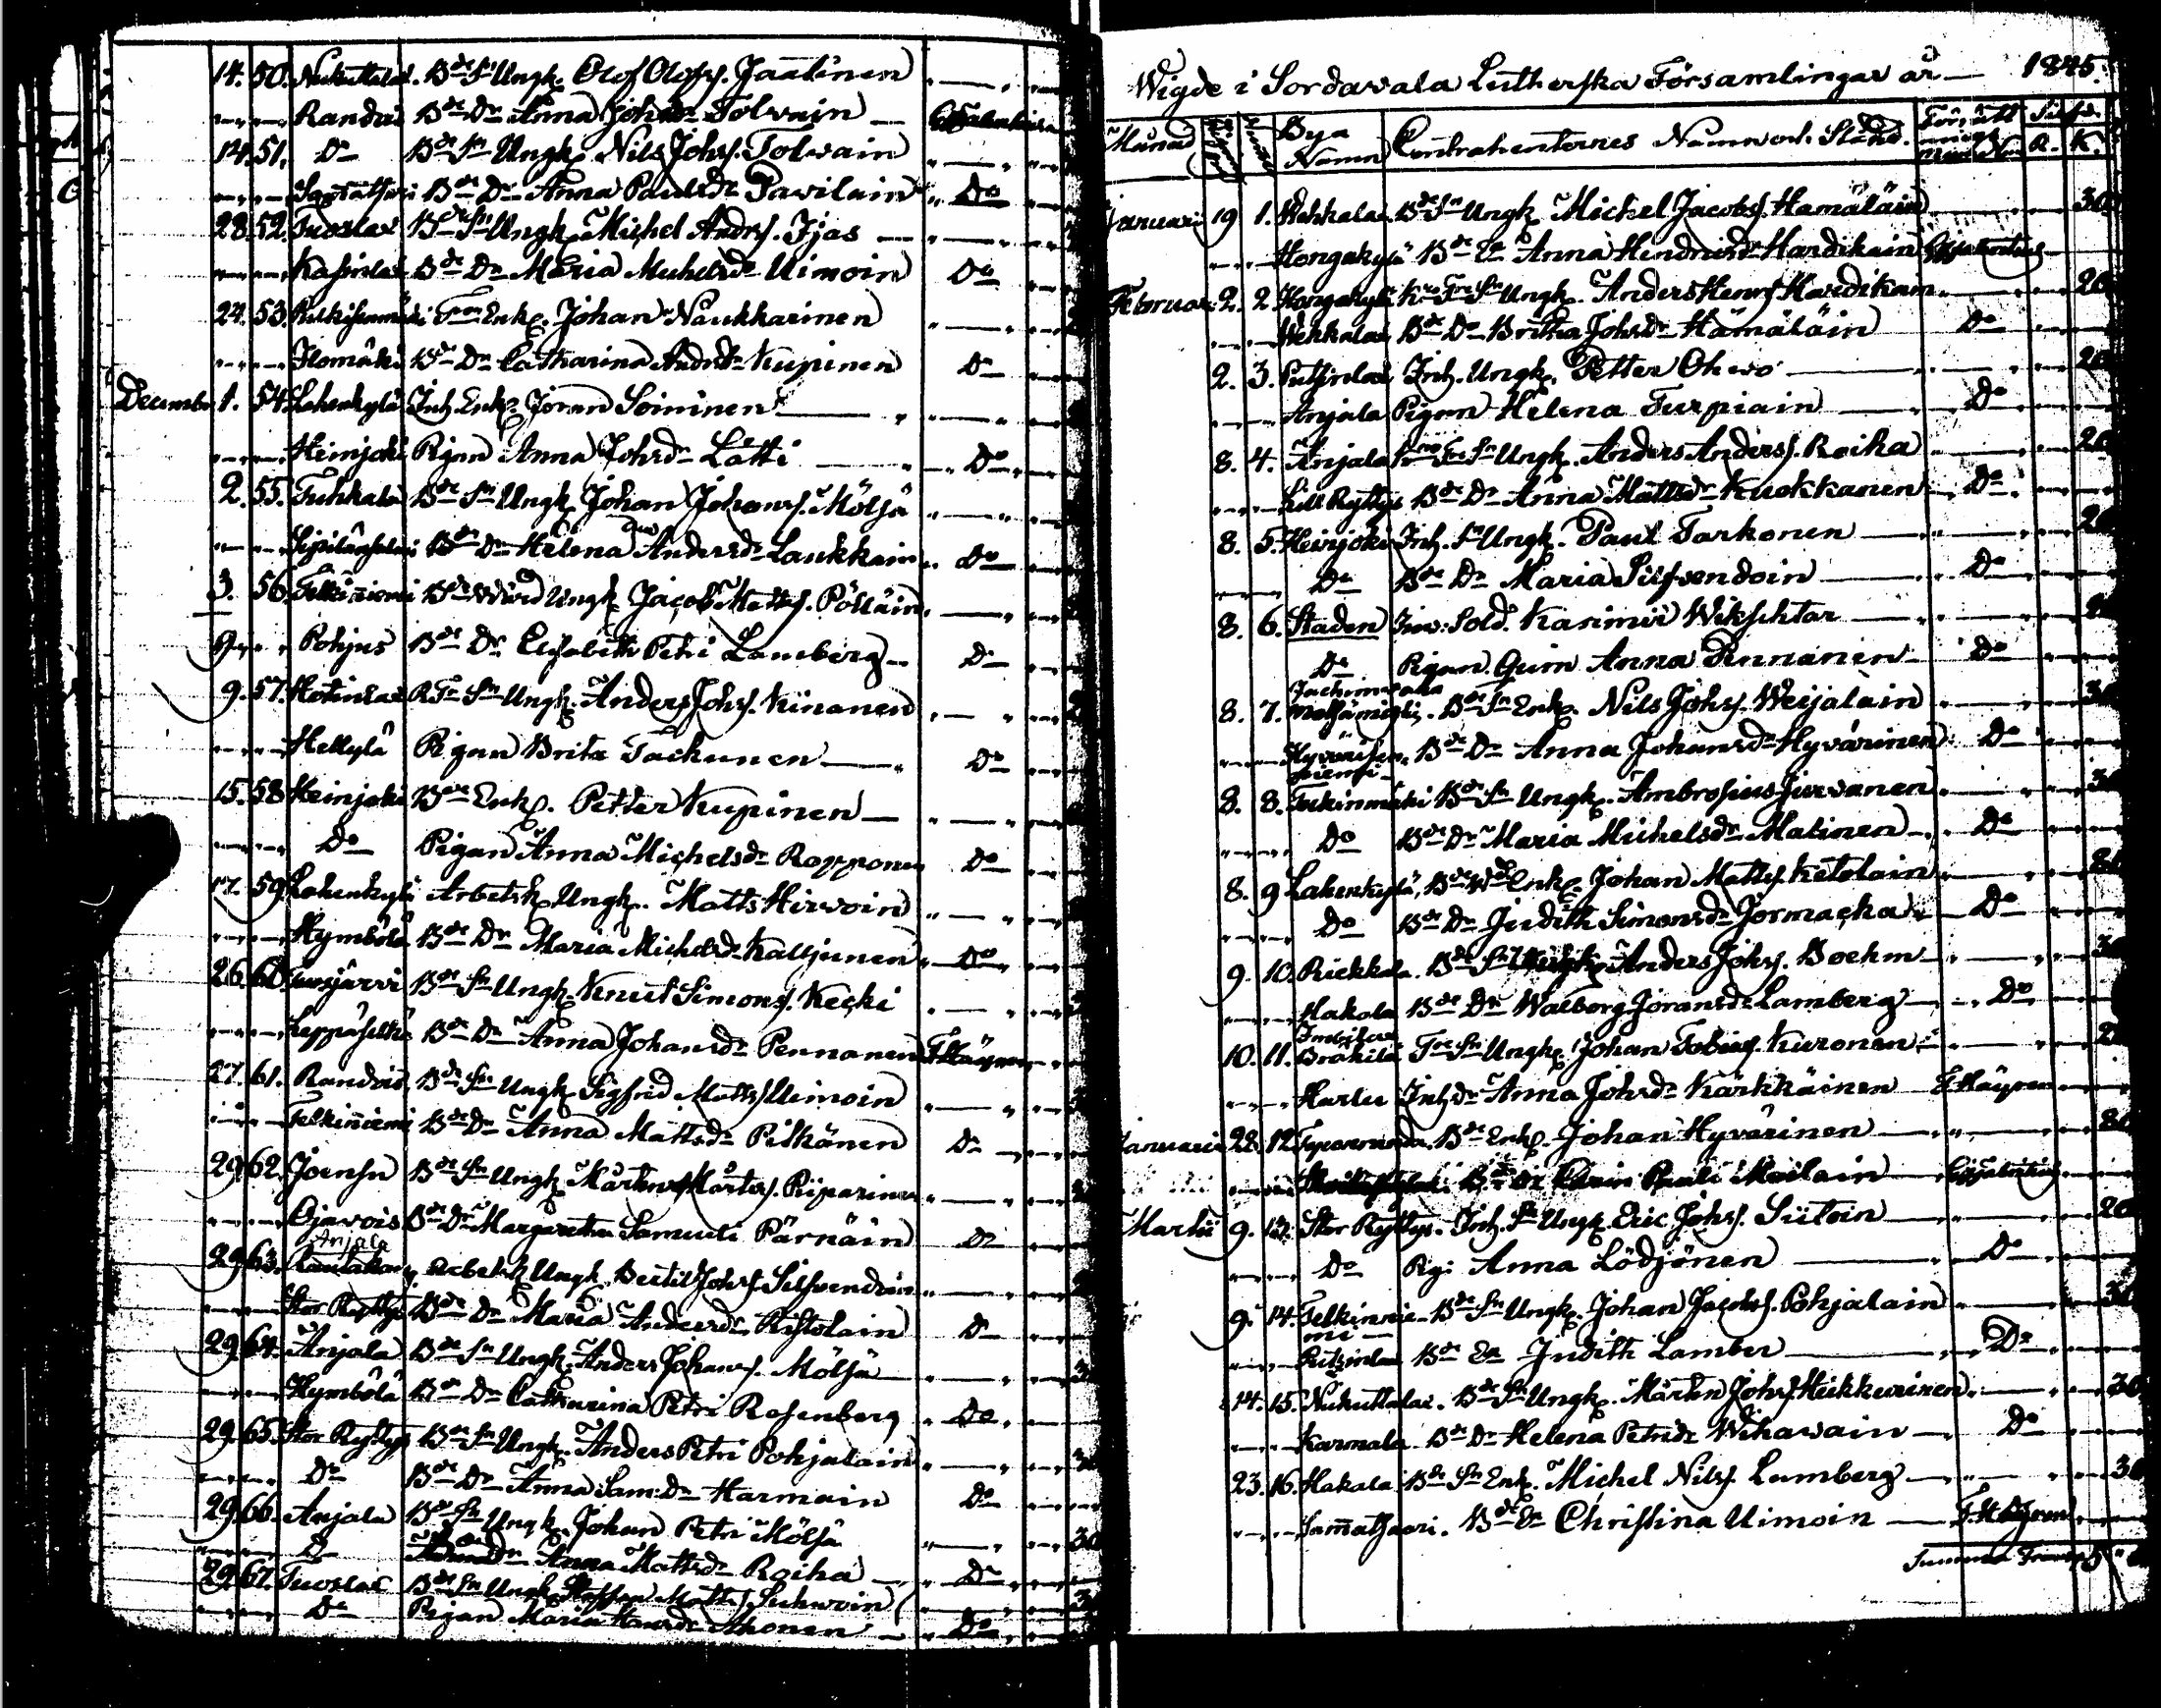 14. 50. Nukuttalax. Bde Sn Ungk. Olof Olofs. Jaatinen
Randvis Bde Dr Anna Johsdr Tolvain
14. 51. Do Bde Sn Ungk. Nils Johs. Tolvain
Bde Dr Anna Paulsdr Pavilain Do
28. 52. Tuoslax Bde Sn Ungk. Michel Andrs. Ijäs
Kasinlax Bde Dr Maria Michelsdr Uimoin Do
24. 53. Enk. Johan Naukkarinen
Ilomäki Bde Dr Catharina Andrsdr Kupinen Do
December 1. 54. Lahenkylä Inh. Enk. Jöran Soininen
Heinjoki Pigan Anna Johsdr Lätti Do
2. 55. Tuhkala Bde Sn Ungk. Johan Johans. Mölsä
Bde Dr Helena Andersdr Laukkain Do
3. 56. Telkiniemi Bde Ungk. Jacob Matts. Pölläin
Pohjus Bde Dr Elisabeth Petri Lamberg Do
9. 57. Hotinlax Sn Ungk. Anders Johs. Kiinanen
Hellylä Pigan Brita Tackunen Do
15. 58 Heinjoki Bde Enk. Petter Kupinen
Do Pigan Anna Michelsdr Ropponen Do
17. 59. Lahenkylä Arbetsk. Ungk. Matts Hirvoin
Hymbölä Bde Dr Maria Michelsdr Kaljunen Do
26. 60. Bde Sn Ungk. Knut Simons. Kecki
Leppäselkä Bde Dr Anna Johansdr Pennanen F. Häyren
27. 61. Randvis Bde Sn Ungk. Sigfrid Matts. Uimoin
Telkiniemi Bde Dr Anna Mattsdr Pitkänen Do
29. 62. Joensu Bde Sn Ungk. Mårten Mårtens. Riiparinen
Ojavois Bde Dr Margaretha Samueli Pärnäin Do
Anjala
29. 63. Arbetsk. Ungk. Bertil Johs. Silfvendoin
Stor Ryttys Bde Dr Maria Andersdr Ristolain Do
29. 64. Anjala Bde Sn Ungk. Anders Johans. Mölsä
Hymbölä Bde Dr Catharina Petri Rosenberg Do
29. 65. Stor Ryttys Bde Sn Ungk. Anders Petri Pohjalain
Do Bde Dr Anna Sam. Dr Harmain Do
29. 66. Anjala Bde Sn Ungk. Johan Petri Mölsä 30
Do Anna Mattsdr Roiha Do
29. 67. Tuoslax Bde Sn Ungk. Staffan Matts. Suhvoin
Do Pigan Maria Ahonen Do
Wigde i Sordavala Lutherska Församlingar år 1845.
Månad Bya Namn Contrahenternes Namn och Stånd. R. K.
Januari 19 1. Wehkalax Bde Sn Ungk. Michel Jacobs. Hämäläin 30
Hongakylä Bde Dr Anna Hendricsdr Hardikain
Februari 2. 2. Hongakylä Sn Ungk. Anders Henrs. Hardikain 20
Wehkalax Bde Dr Britha Johsdr Hämäläin Do
2. 3. Putsinlax Inh. Ungk. Petter Ohvo 20
Anjala Pigan Helena Turpiain Do
8. 4. Anjala Sn Ungk. Anders Anders. Roiha 20
Lill Ryttys Bde Dr Anna Mattsdr Kuokkanen Do
8. 5. Heinjoki Inh. Sn Ungk. Paul Tarkonen 20
Do Bde Dr Maria Silfvendoin Do
8. 6. Staden Sold. Kasimir Wikschtar
Do Pigan Anna Pennanen Do
8. 7. Bde Sn Enk. Nils Johs. Weijalain 30
Bde Dr Anna Johansdr Hyvärinen Do
8. 8. Bde Sn Ungk. Ambrosius Jurvanen 30
Do Bde Dr Maria Michelsdr Matinen Do
8. 9 Lahenkylä, Bde Enk. Johan Matts. Ketolain
Do Bde Dr Judith Simonsdr Jormacka Do
9. 10. Riekkala Bde Sn Ungk. Anders Johs. Boehm 30
Hakala Bde Dr Walborg Joransdr Lamberg Do
10. 11. Brahila Sn Ungk. Johan Tobias. Kuronen
Harlu Inh. Dr Anna Johsdr Kärkkäinen F. Häyren
Januarii 28. 12. Bde Enk. Johan Hyvärinen
Pauli Moilain
Martii 9. 13. Stor Ryttys. Inh. Sn Ungk. Eric Johs. Siitoin 20
Do Pig: Anna Lödjönen Do
9. 14. Telkinniemi Bde Sn Ungk. Johan Jacobs. Pohjalain 30
Putsinlax Bde Dr Judith Lamber Do
14. 15. Nukuttalax. Bde Sn Ungk. Mårten Johs. Heikkurinen 30
Karmala Bde Dr Helena Petridr Wihavain Do
23. 16. Hakala Bde Sn Enk. Michel Nils. Lamberg 30
Bde Dr Christina Uimoin F. Häyren
Summa